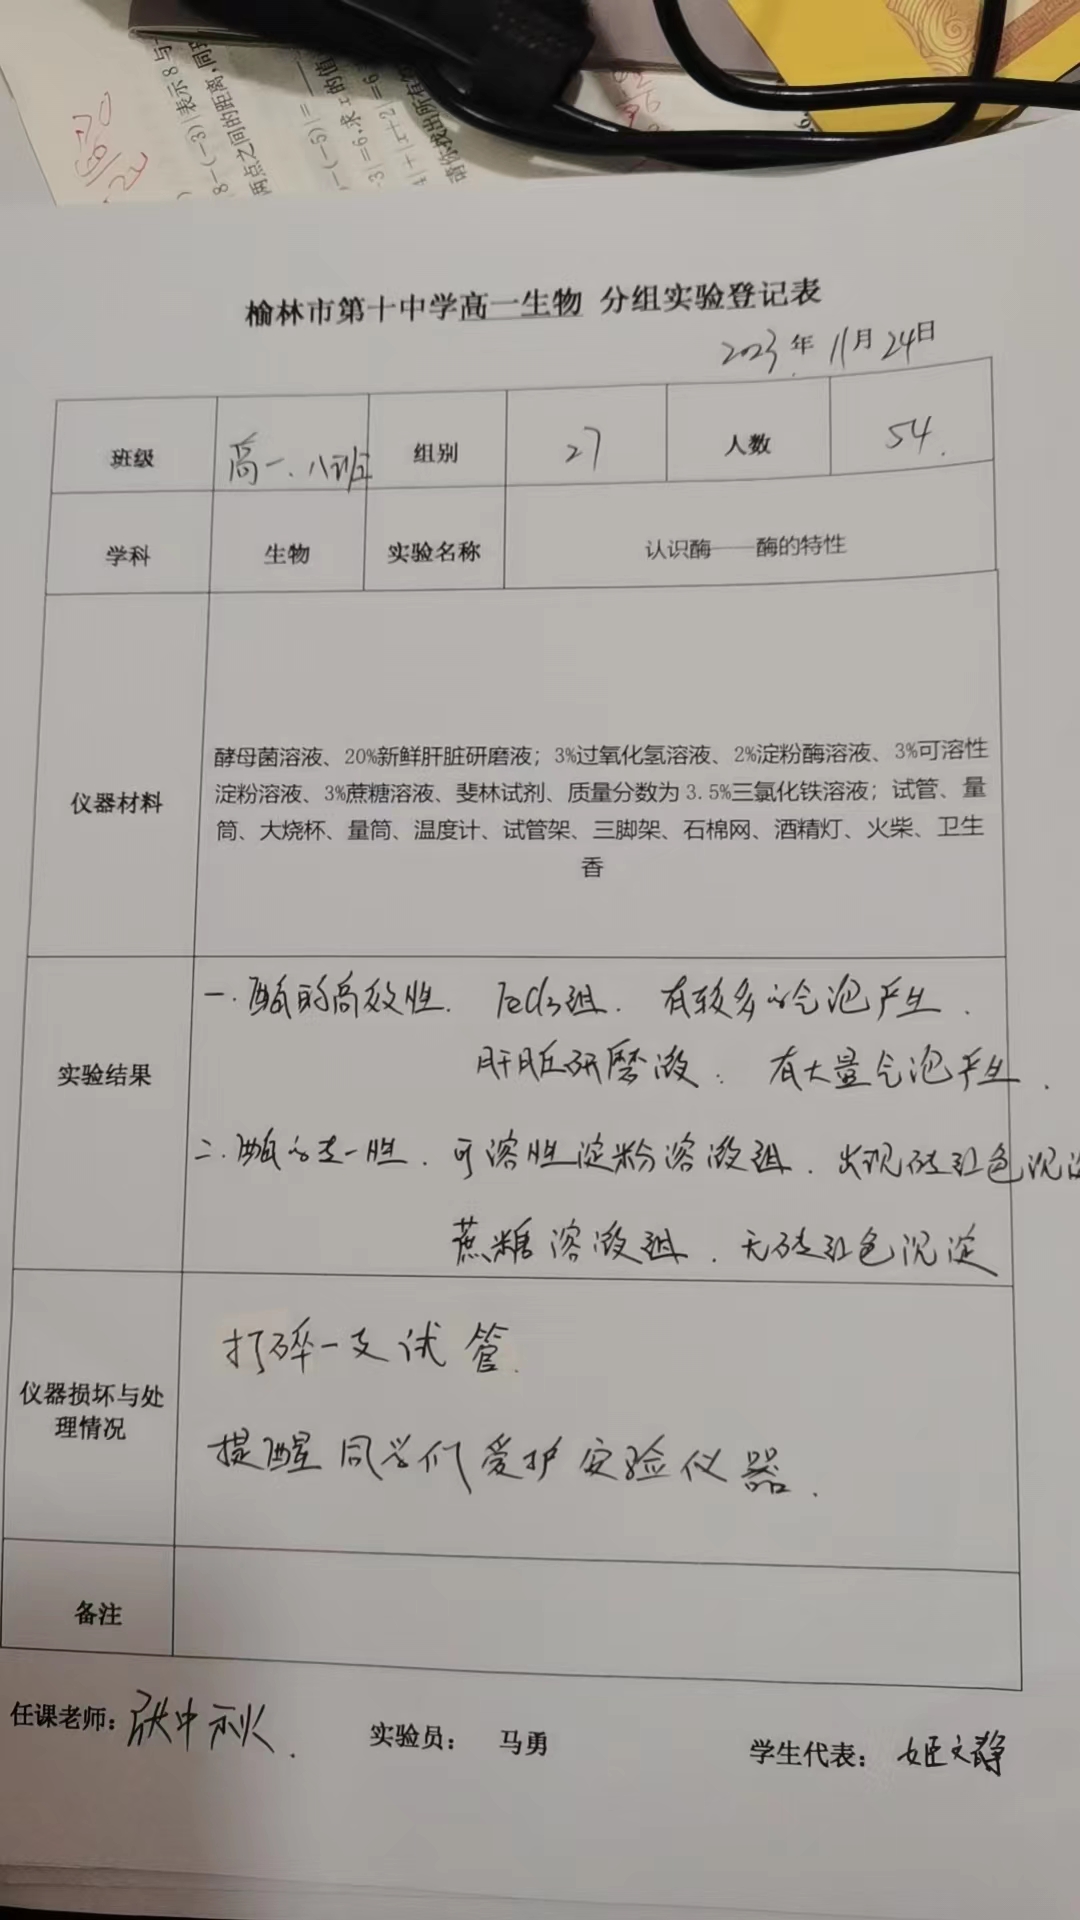 8与
(-3)|表示8与
8-(-3)
两点之间的距离,同
-(-5)|=
-3|=6,求x的值
4|+|x+2|=6
榆林市第十中学高一生物 分组实验登记表
2023年11月24日
班级 高一.八班 组别 27 人数 54.
学科 生物 实验名称 认识酶——酶的特性
酵母菌溶液、20%新鲜肝脏研磨液；3%过氧化氢溶液、2%淀粉酶溶液、3%可溶性
仪器材料 淀粉溶液、3%蔗糖溶液、斐林试剂、质量分数为3.5%三氯化铁溶液；试管、量
筒、大烧杯、量筒、温度计、试管架、三脚架、石棉网、酒精灯、火柴、卫生
香
一.酶的高效性. FeCl3组. 有较多的气泡产生.
实验结果 肝脏研磨液. 有大量气泡产生.
二.酶的专一性. 可溶性淀粉溶液组. 出现砖红色沉淀
蔗糖溶液组. 无砖红色沉淀
打碎一支试管.
仪器损坏与处
理情况
提醒同学们爱护实验仪器.
备注
任课老师: 张中秋. 实验员: 马勇 学生代表: 姬文静